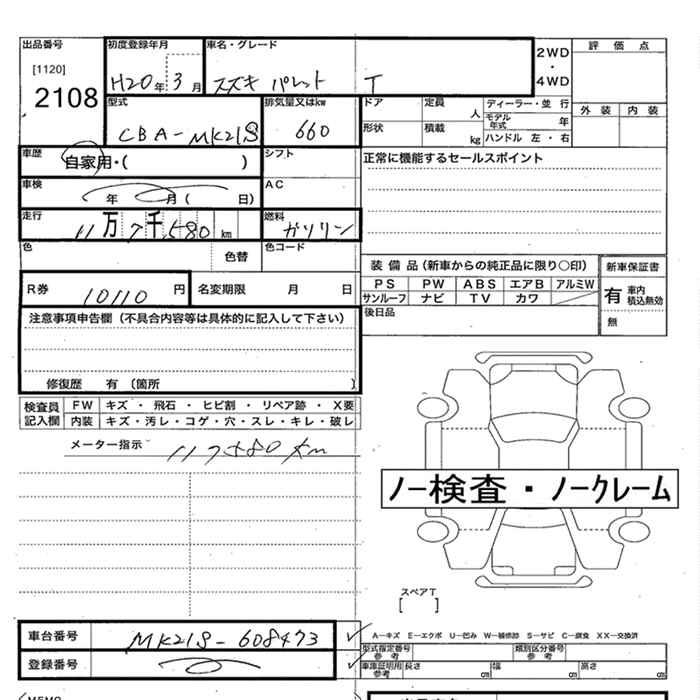 出品番号 初度登録年月 車名・グレード 2WD 評価点
[1120] ・
2108 H20年 3月 スズキ パレット T 4WD
型式 排気量又はkw ドア 定員 人 ディーラー・並行 外装 内装
CBA-MK21S 660 形状 積載 kg モデル年式 年
ハンドル 左・右
車歴 自家用・( ) シフト 正常に機能するセールスポイント
車検 年 月( 日) AC
走行 11万7千,580km 燃料 ガソリン
色 色替 色コード
装備品(新車からの純正品に限り○印) 新車保証書
R券 10110円 名変期限 月 日 PS PW ABS エアB アルミW 有 車内積込無効
サンルーフ ナビ TV カワ
注意事項申告欄(不具合内容等は具体的に記入して下さい) 後日品 無
修復歴 有〔箇所 〕
検査員 FW キズ・飛石・ヒビ割・リペア跡・X要
記入欄 内装 キズ・汚レ・コゲ・穴・スレ・キレ・破レ
メーター指示 117580km
ノー検査・ノークレーム
スペアT
[ ]
車台番号 MK21S-608473 A-キズ E-エクボ U-凹み W-補修跡 S-サビ C-腐食 XX-交換済
型式指定番号参考 類別区分番号参考
登録番号 車庫証明用参考 長さ cm 幅 cm 高さ cm